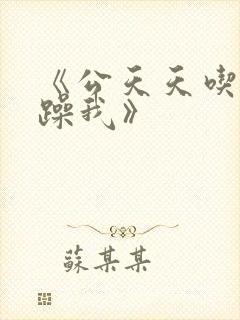 《公天天喫
躁我》
蘇某某